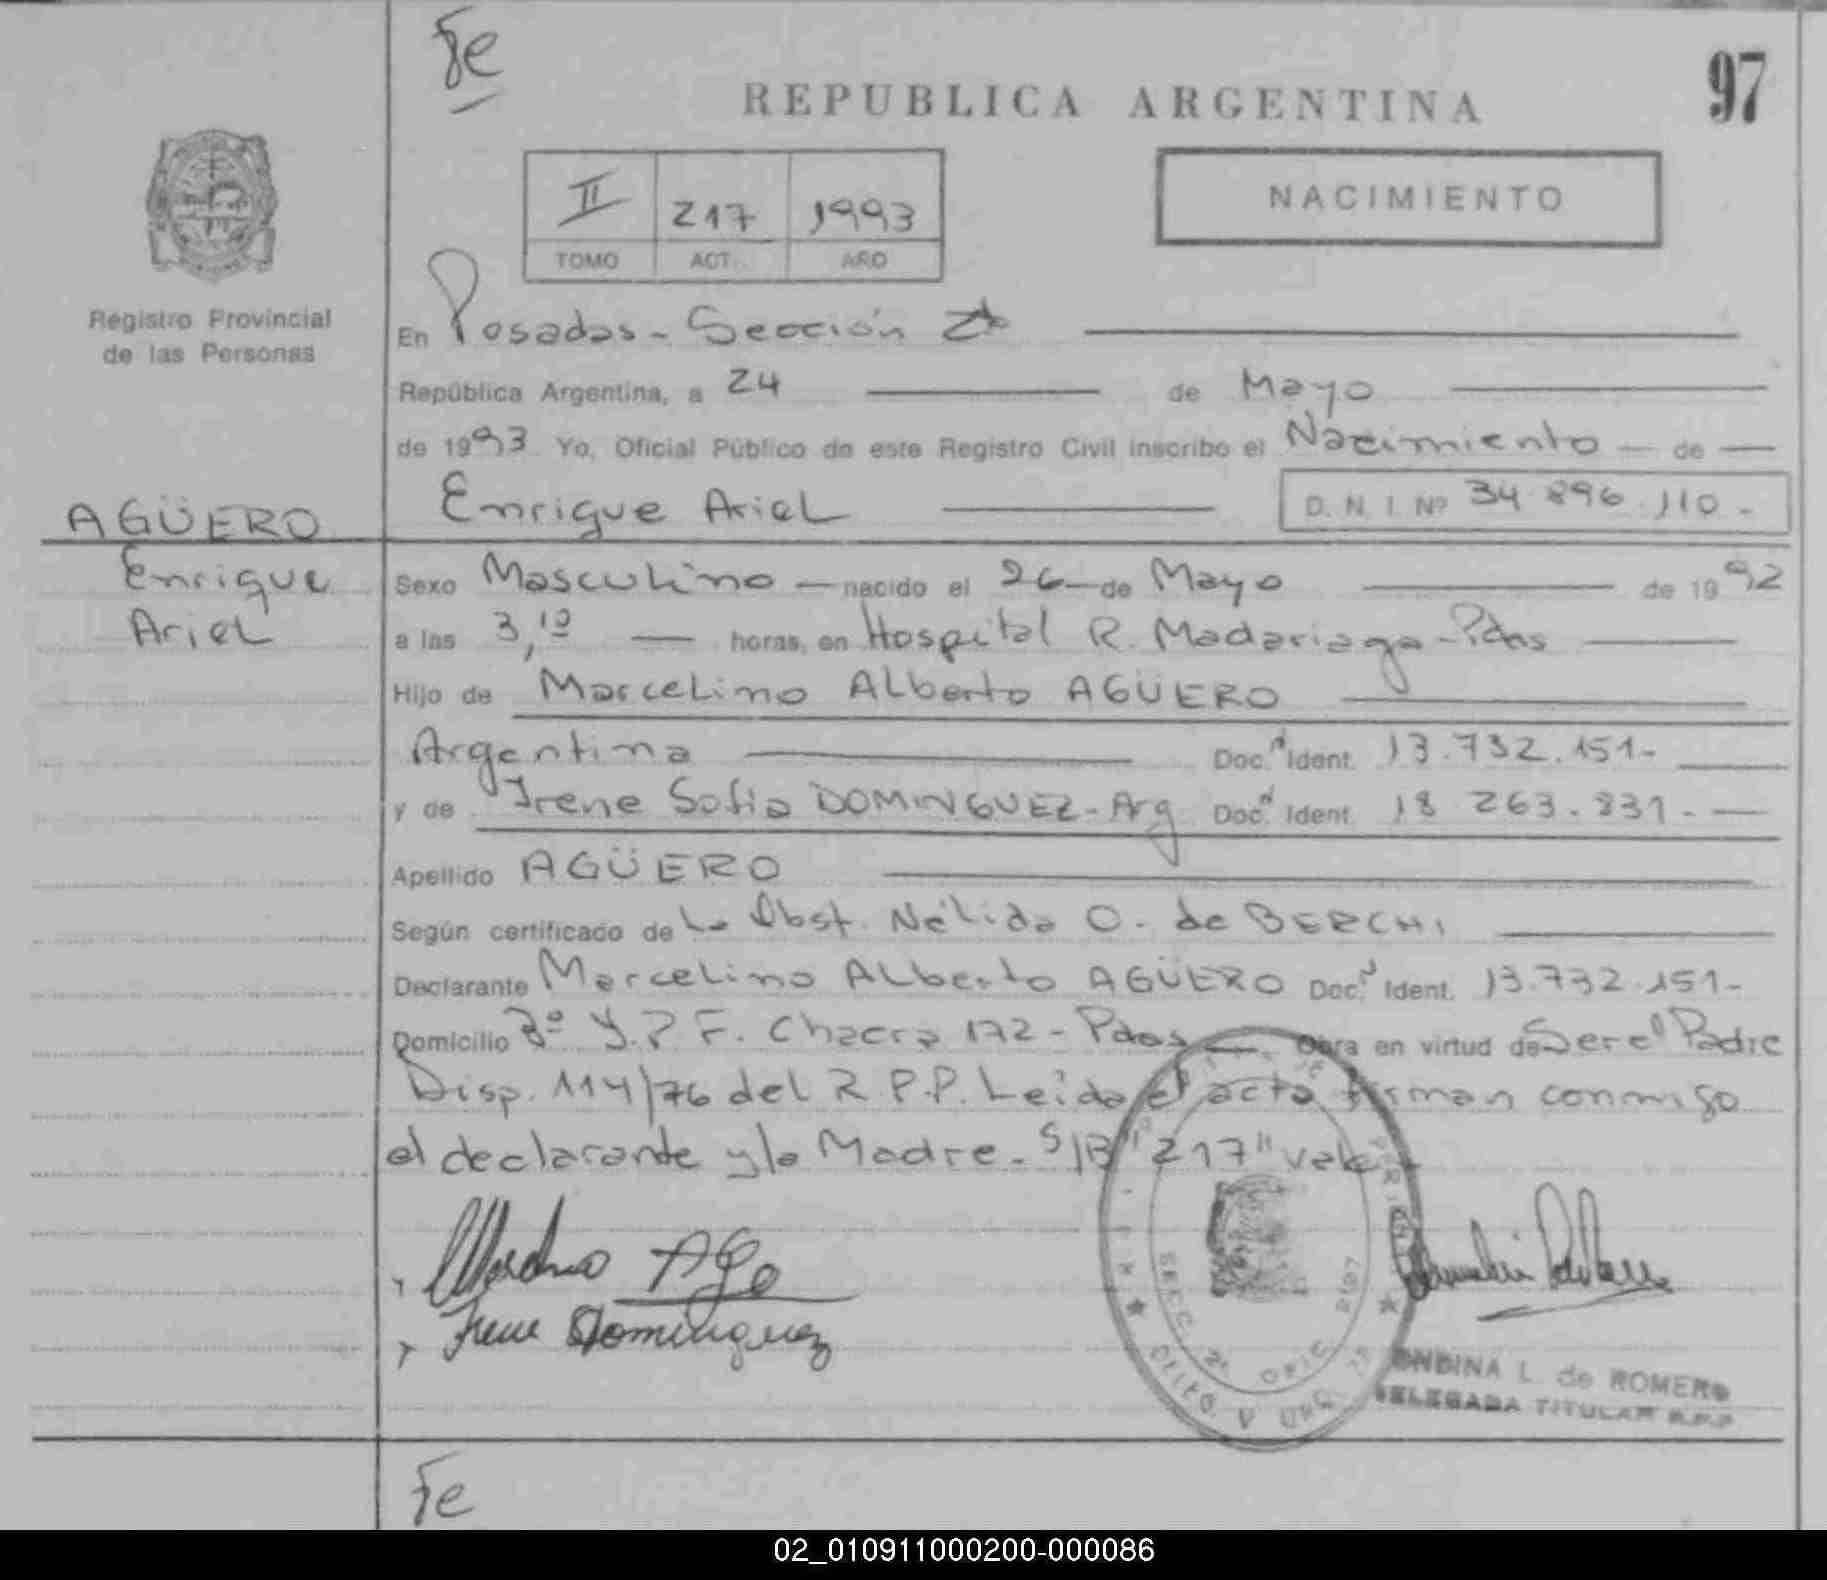 Fe
REPUBLICA ARGENTINA
97
II 217 1993
TOMO ACT. AÑO
NACIMIENTO
Registro Provincial
de las Personas
En Posadas - Sección 2ª
República Argentina, a 24 de Mayo
de 1993 Yo, Oficial Público de este Registro Civil inscribo el Nacimiento de
AGÜERO
Enrique Ariel
D. N. I. Nº 34.896.110.-
Enrique
Ariel
Sexo Masculino nacido el 26 de Mayo de 1992
a las 3,10 horas, en Hospital R. Madariaga - Pdas
Hijo de Marcelino Alberto AGÜERO
Argentina Doc. Ident. 13.732.151-
y de Irene Sofia DOMINGUEZ - Arg Doc. Ident. 18 263.831.-
Apellido AGÜERO
Según certificado de la Obst. Nélida O. de BERCHI
Declarante Marcelino Alberto AGÜERO Doc. Ident. 13.732.151-
Domicilio Bº Y.P.F. Chacra 172 - Pdas Obra en virtud de Ser el Padre
Disp. 114/76 del R.P.P. Leida el acta firman conmigo
el declarante y la Madre. S/B "217" vale
Irene Dominguez
SECC. 2ª OFIC.
ONDINA L. de ROMERO
DELEGADA TITULAR R.P.P.
Fe
02_010911000200-000086